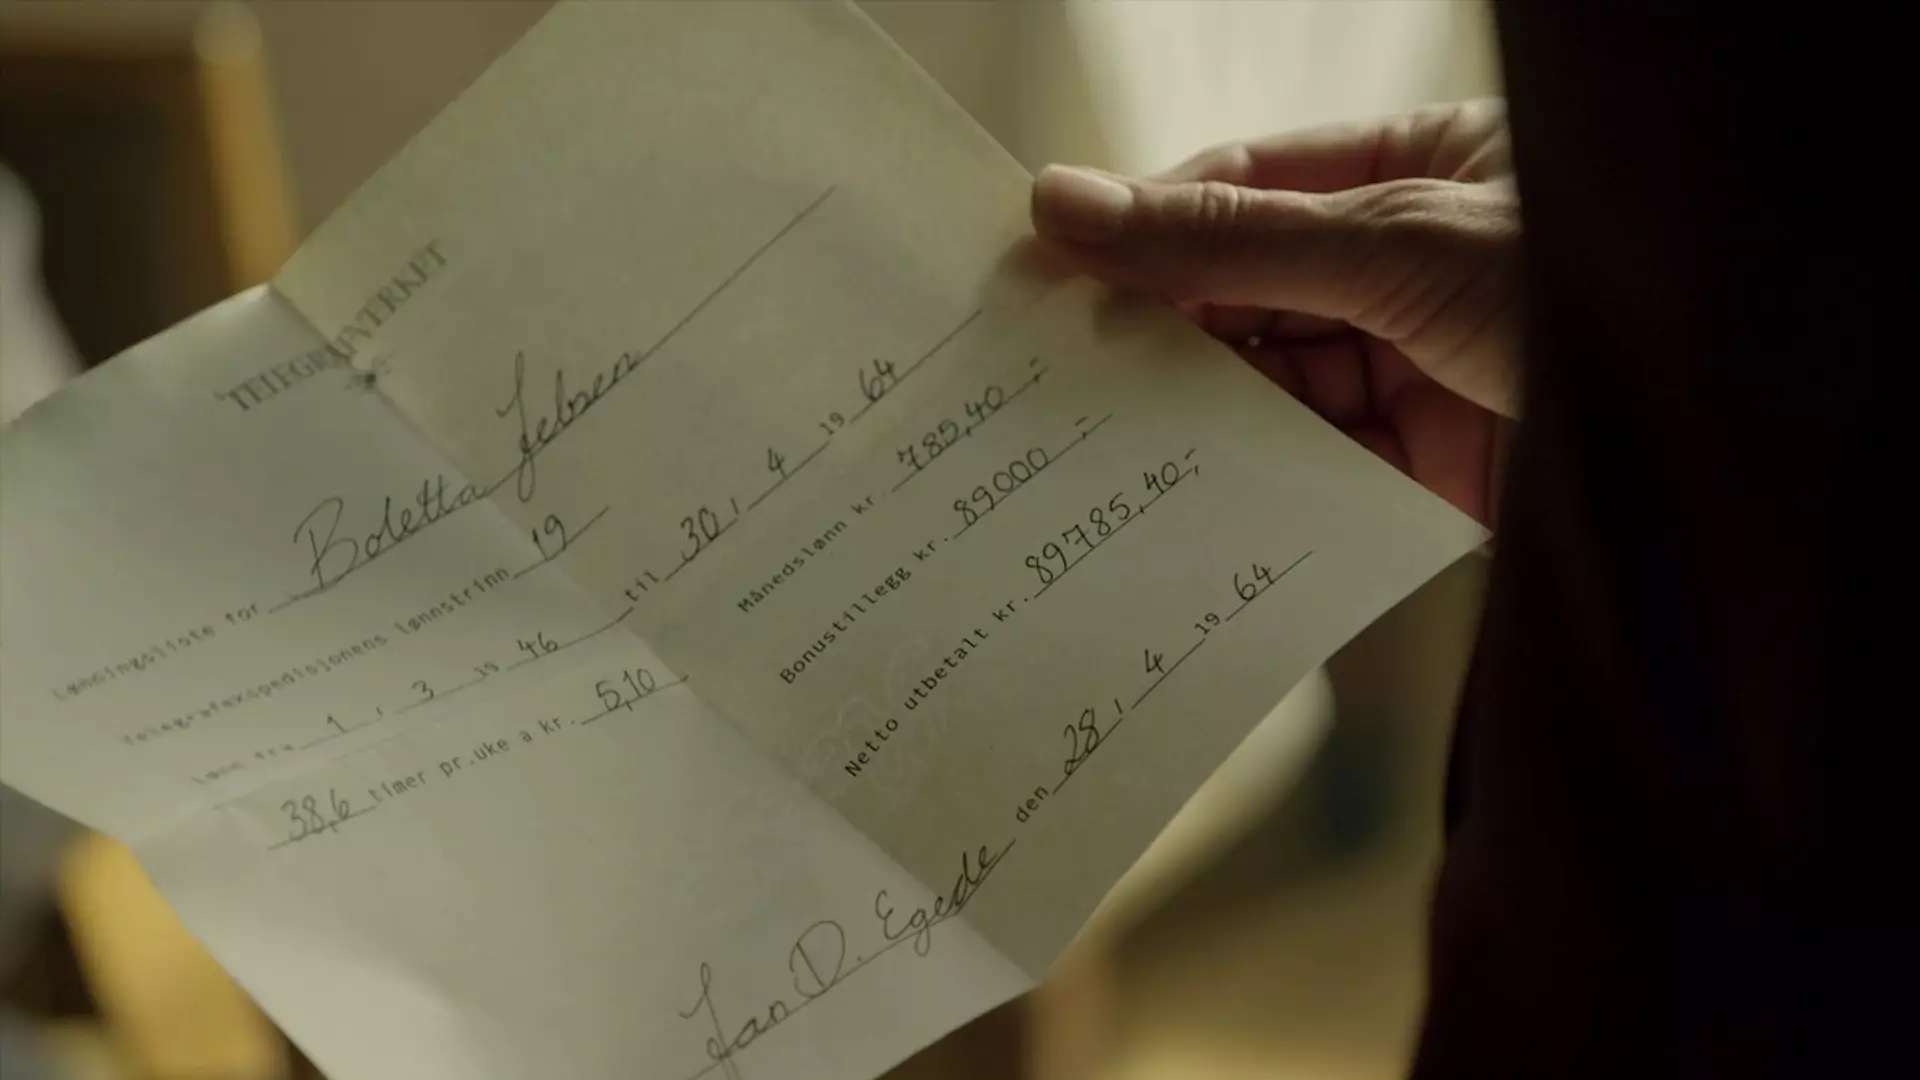 TELEGRAFVERKET
Lønningsliste for Boletta Jebsen
Telegrafekspedisjonens lønnstrinn 19
Lønn fra 1, 3 19 46 til 30, 4 19 64
38,6 timer pr.uke a kr. 5,10
Månedslønn kr. 785,40 :-
Bonustillegg kr. 89000 :-
Netto utbetalt kr. 89785,40:-
Jan D. Egede den 28, 4 19 64